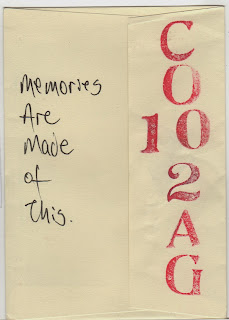 memories
Are
Made
of
this.
C
O
O
10
2
A
G